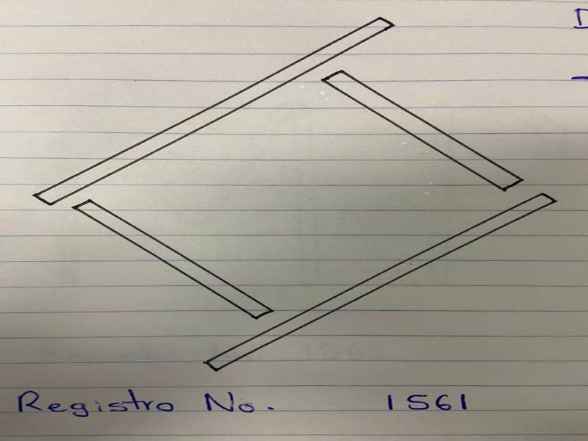 Registro No. 1561